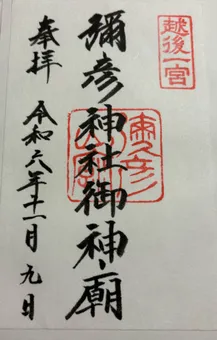 越後一宮
奉拝
彌彦神社御神廟
令和六年十一月九日